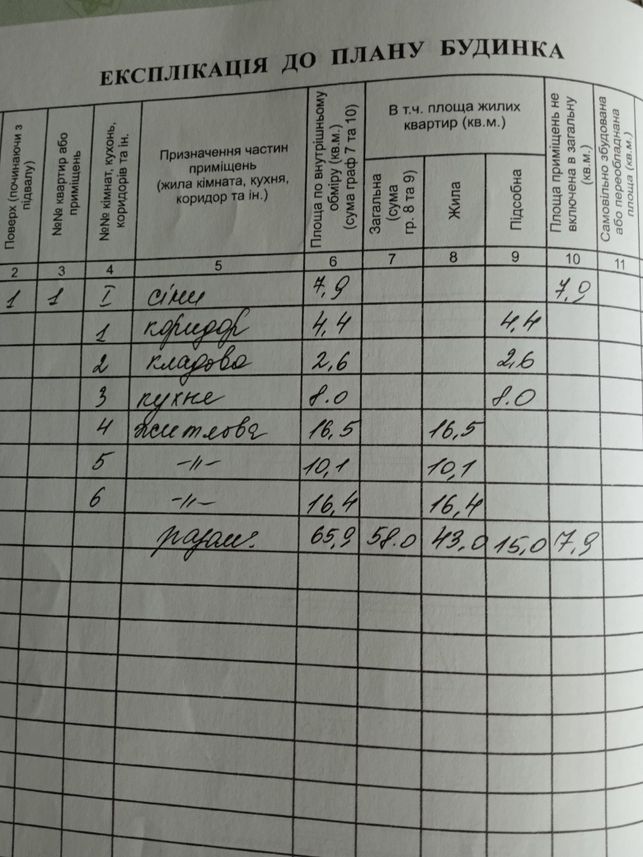 ЕКСПЛІКАЦІЯ ДО ПЛАНУ БУДИНКА
Поверх (починаючи з підвалу)
№№ квартир або приміщень
№№ кімнат, кухонь, коридорів та ін.
Призначення частин
приміщень
(жила кімната, кухня,
коридор та ін.)
Площа по внутрішньому
обміру (кв.м.)
(сума граф 7 та 10)
В т.ч. площа жилих
квартир (кв.м.)
Загальна
(сума
гр. 8 та 9)
Жила
Підсобна
Площа приміщень не
включена в загальну
(кв.м.)
Самовільно збудована
або переобладнана
площа (кв.м.)
2 3 4 5 6 7 8 9 10 11
1 1 I сіни 7,9 7,9
1 коридор 4,4 4,4
2 кладова 2,6 2,6
3 кухне 8.0 8.0
4 житлова 16,5 16,5
5 -//- 10,1 10,1
6 -//- 16,4 16,4
разом: 65,9 58.0 43,0 15,0 7,9